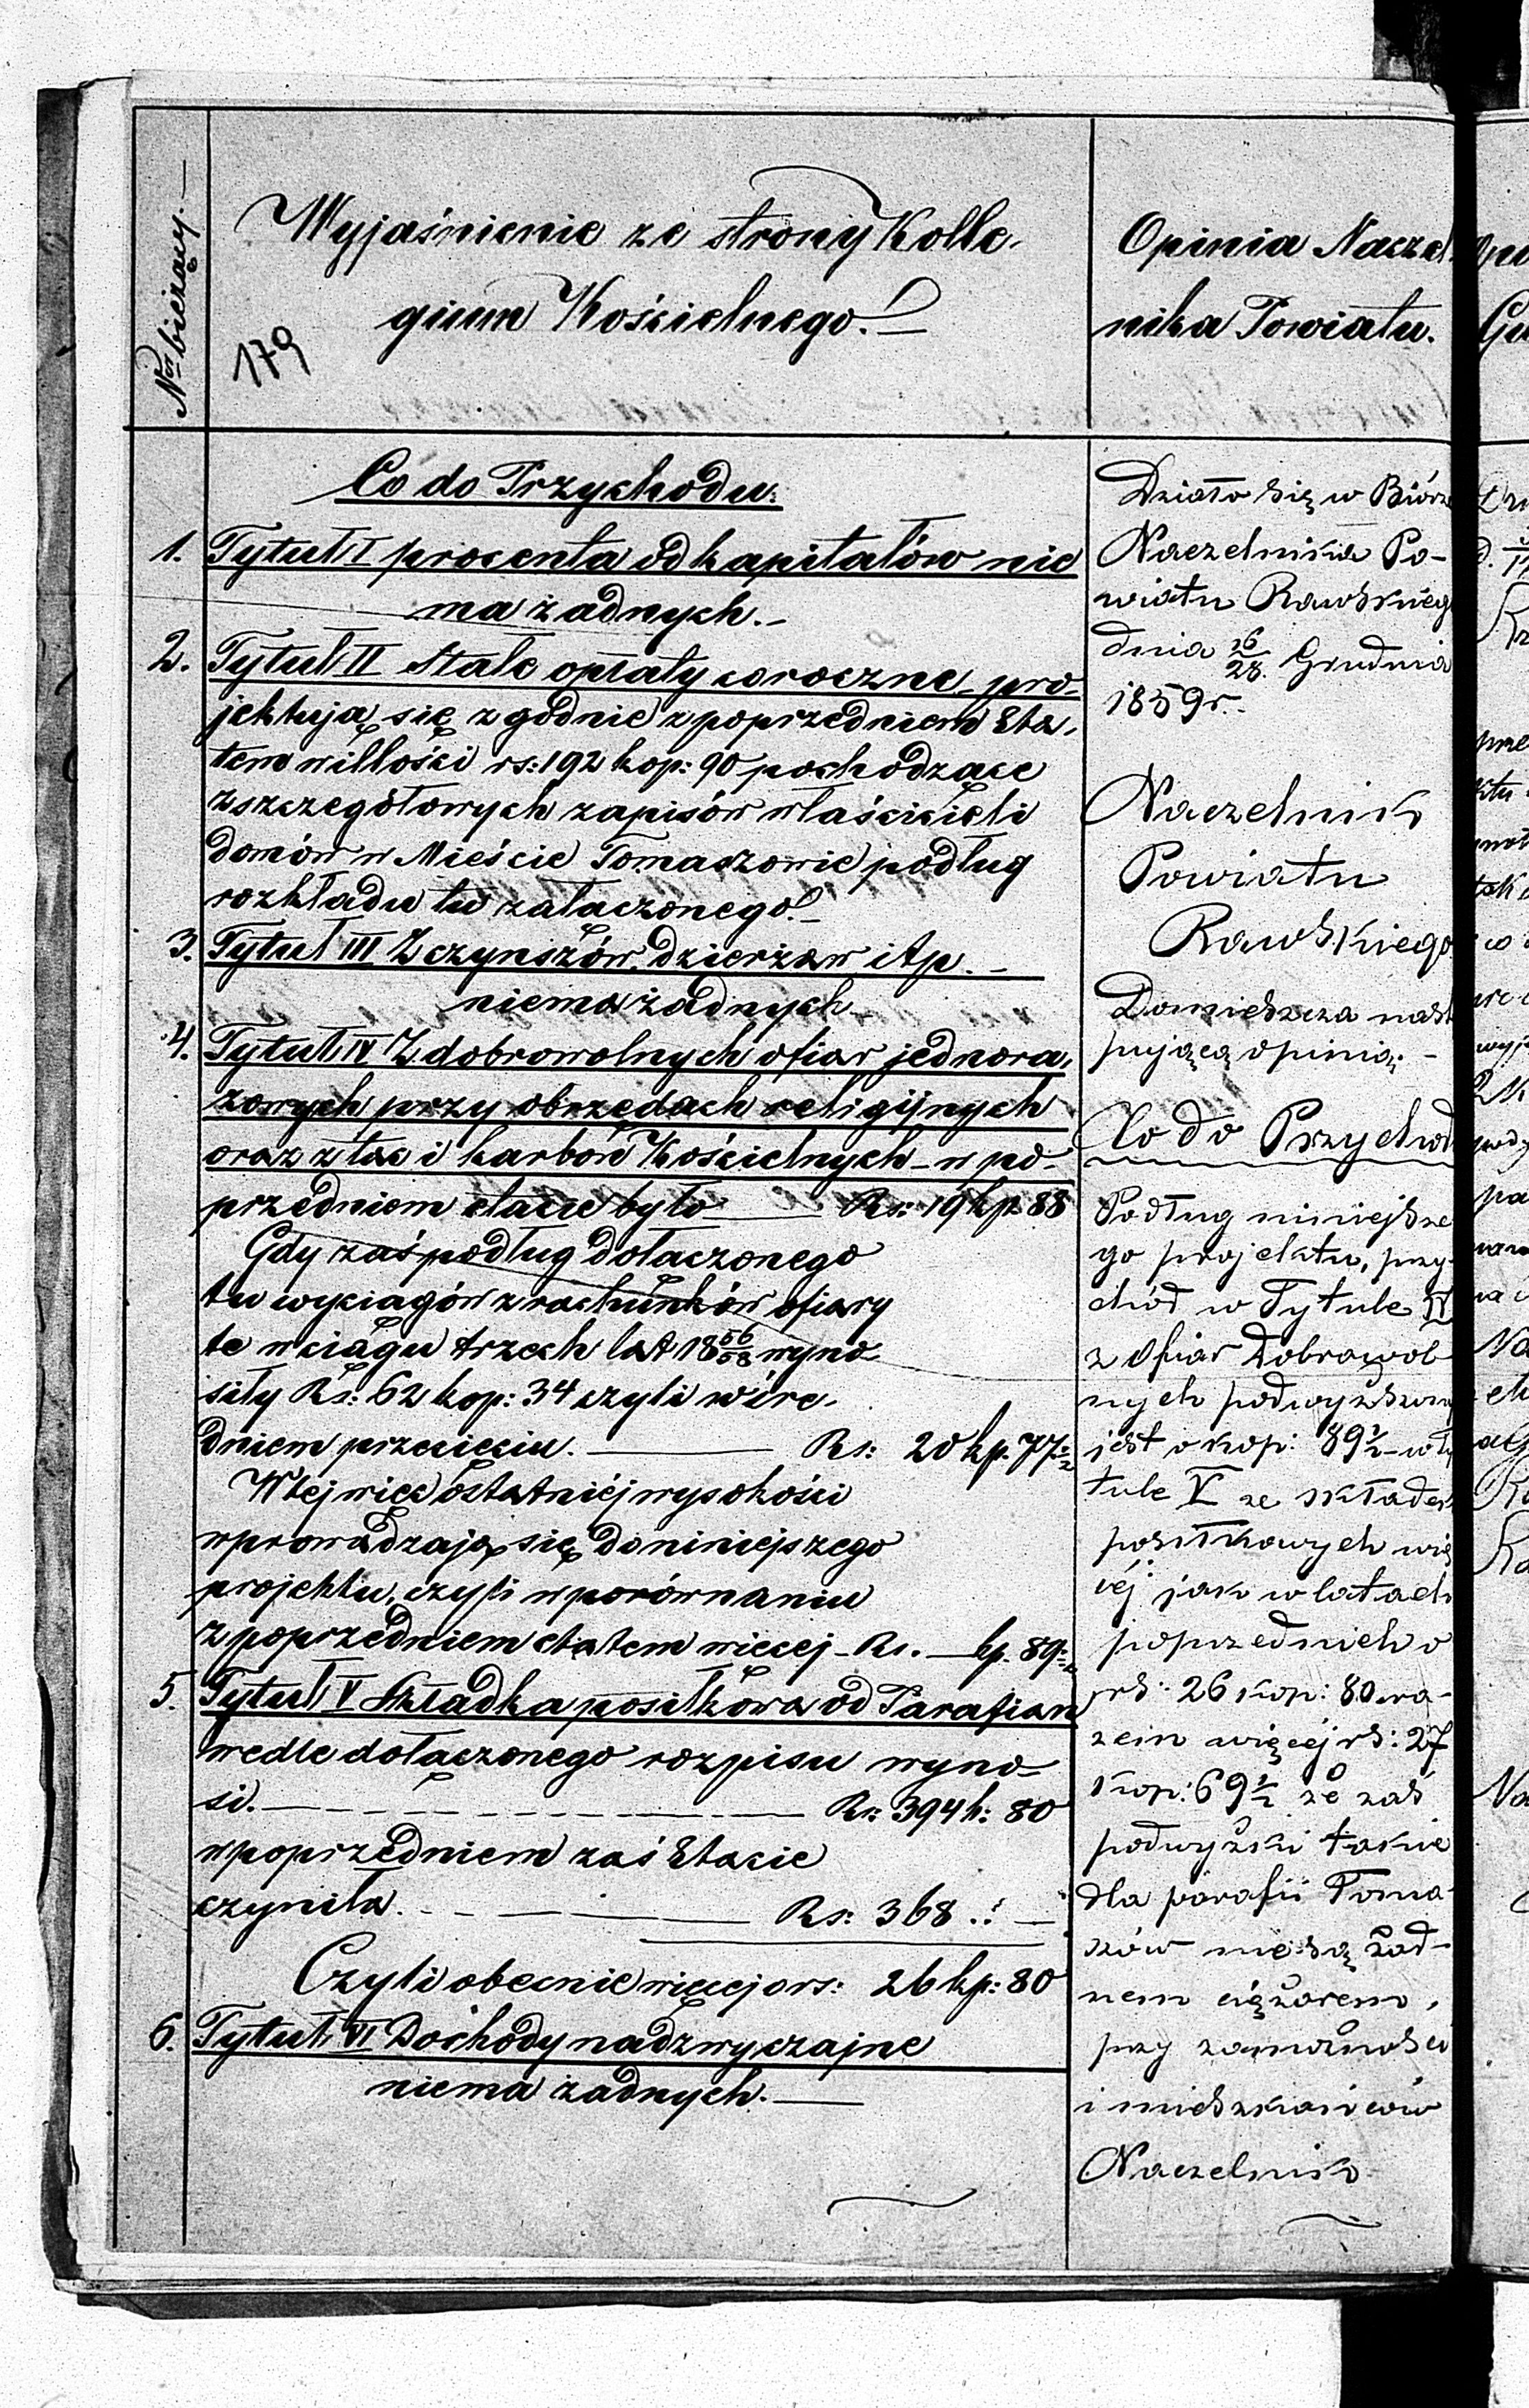 Nr bieżący.—
Wyjaśnienie ze strony Kolle-
gium Kościelnego.—
179
Co do Przychodu.
1. Tytuł I procenta od kapitałów nie
ma żadnych.—
2. Tytuł II Stałe opłaty coroczne pro-
jektują się zgodnie z poprzedniem Eta-
tem w illości rs: 192 kop: 90 pochodzące
z szczegółowych zapisów właścicieli
domów w Mieście Tomaszowie podług
rozkładu tu załączonego.—
3. Tytuł III Z czynszów, dzierżaw itp.—
niema żadnych
4. Tytuł IV Z dobrowolnych ofiar jednora-
zowych przy obrzędach religijnych
oraz z tac i karbon Kościelnych - w po-
przedniem etacie było — Rs: 19 kp 88
Gdy zaś podług dołączonego
tu wyciągów z rachunków ofiary
te w ciągu trzech lat 18 56/58 wyno-
siły Rs: 62 kop: 34 czyli w śre-
dniem przecięciu. — Rs: 20 kp. 77 1/2
W tej więc ostatniéj wysokości
wprowadzają się do niniejszego
projektu, czyli w porównaniu
z poprzedniem etatem więcej - Rs. — kp. 89 1/2
5. Tytuł V Składka posiłkowa od Parafian
wedle dołączonego rozpisu wyno-
si. — Rs: 394 k: 80
w poprzedniem zaś Etacie
czyniła. — Rs: 368 .: —
Czyli obecnie więcej o rs: 26 kp: 80
6. Tytuł VI Dochody nadzwyczajne
niema żadnych.—
Opinia Naczel-
nika Powiatu.
Działo się w Biórze
Naczelnika Po-
wiatu Rawskieg
dnia 16/28. Grudnia
1859 r.
Naczelnik
Powiatu
Rawskiego
Domieszcza nast
pującą opinią: -
Co do Przychod
Podług niniejsze
go projektu, przy-
chód w Tytule IV
z ofiar Dobrowol
nych podwyższony
jest o kop: 89 1/2 - w ty
tule V ze składek
posiłkowych wię
céj jak w latach
poprzednich o
rs: 26 kop: 80 ra-
zem więcéj rs: 27
kop: 69 1/2 że zaś
podwyżki takie
dla parafii Toma-
szów nie są żad-
nem ciężarem,
przy zamożności
i mieszkańców
Naczelnik